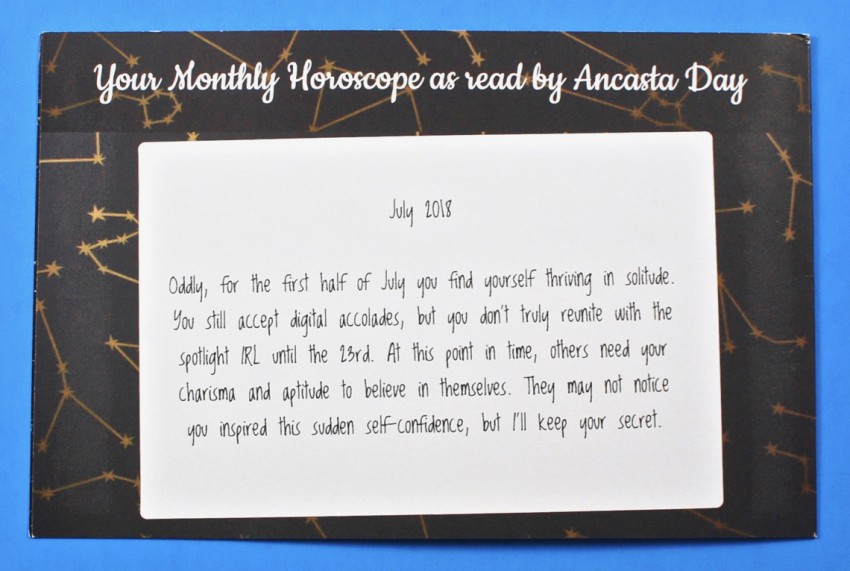 Your Monthly Horoscope as read by Ancasta Day
July 2018
Oddly, for the first half of July you find yourself thriving in solitude.
You still accept digital accolades, but you don't truly reunite with the
spotlight IRL until the 23rd. At this point in time, others need your
charisma and aptitude to believe in themselves. They may not notice
you inspired this sudden self-confidence, but I'll keep your secret.